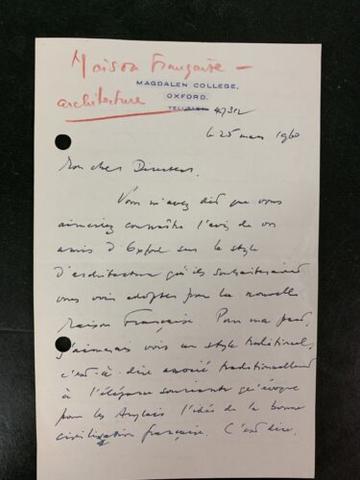 Maison Française –
architecture
MAGDALEN COLLEGE,
OXFORD.
47312
le 25 mars 1960
Mon cher Directeur.
Vous m'avez dit que vous
aimeriez connaître l'avis de vos
amis d'Oxford sur le style
d'architecture qu'ils souhaiteraient
vous voir adopter pour la nouvelle
Maison Française. Pour ma part,
j'aimerais voir un style traditionnel,
c'est-à-dire associé traditionnellement
à l'élégance souriante qu'évoque
pour les Anglais l'idée de la bonne
civilisation française. C'est dire,